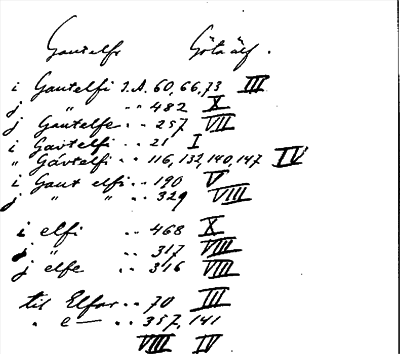 Gautelfr Göta älf.
i Gautelfi S.A. 60, 66, 73 III
j " " 482 X
j Gautelfe " " 257 VII
i Gavtelfi " " 21 I
" Gávtelfi " " 116, 132, 140, 147 IV
i Gaut elfi " " 190 V
j " " " " 329 VIII
i elfi " " 468 X
j " " " 317 VIII
j elfe " " 316 VIII
til Elfar " " 70 III
" e— " " 357, 141
VIII IV